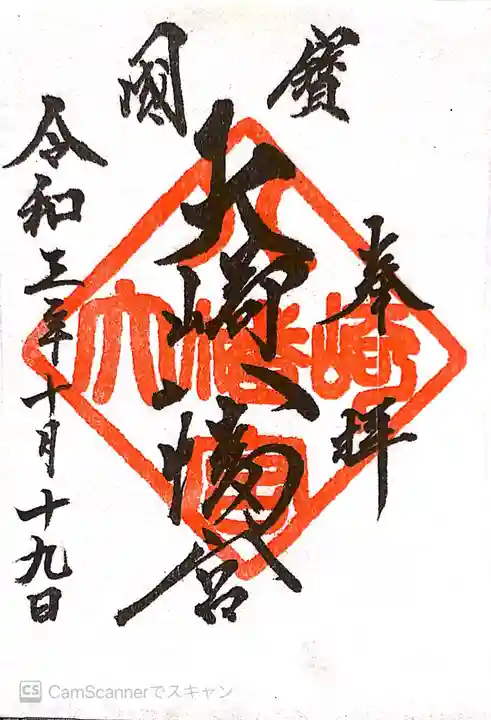 國寳
奉拝
大崎八幡宮
令和三年十月十九日
大崎八幡宮
CS CamScannerでスキャン